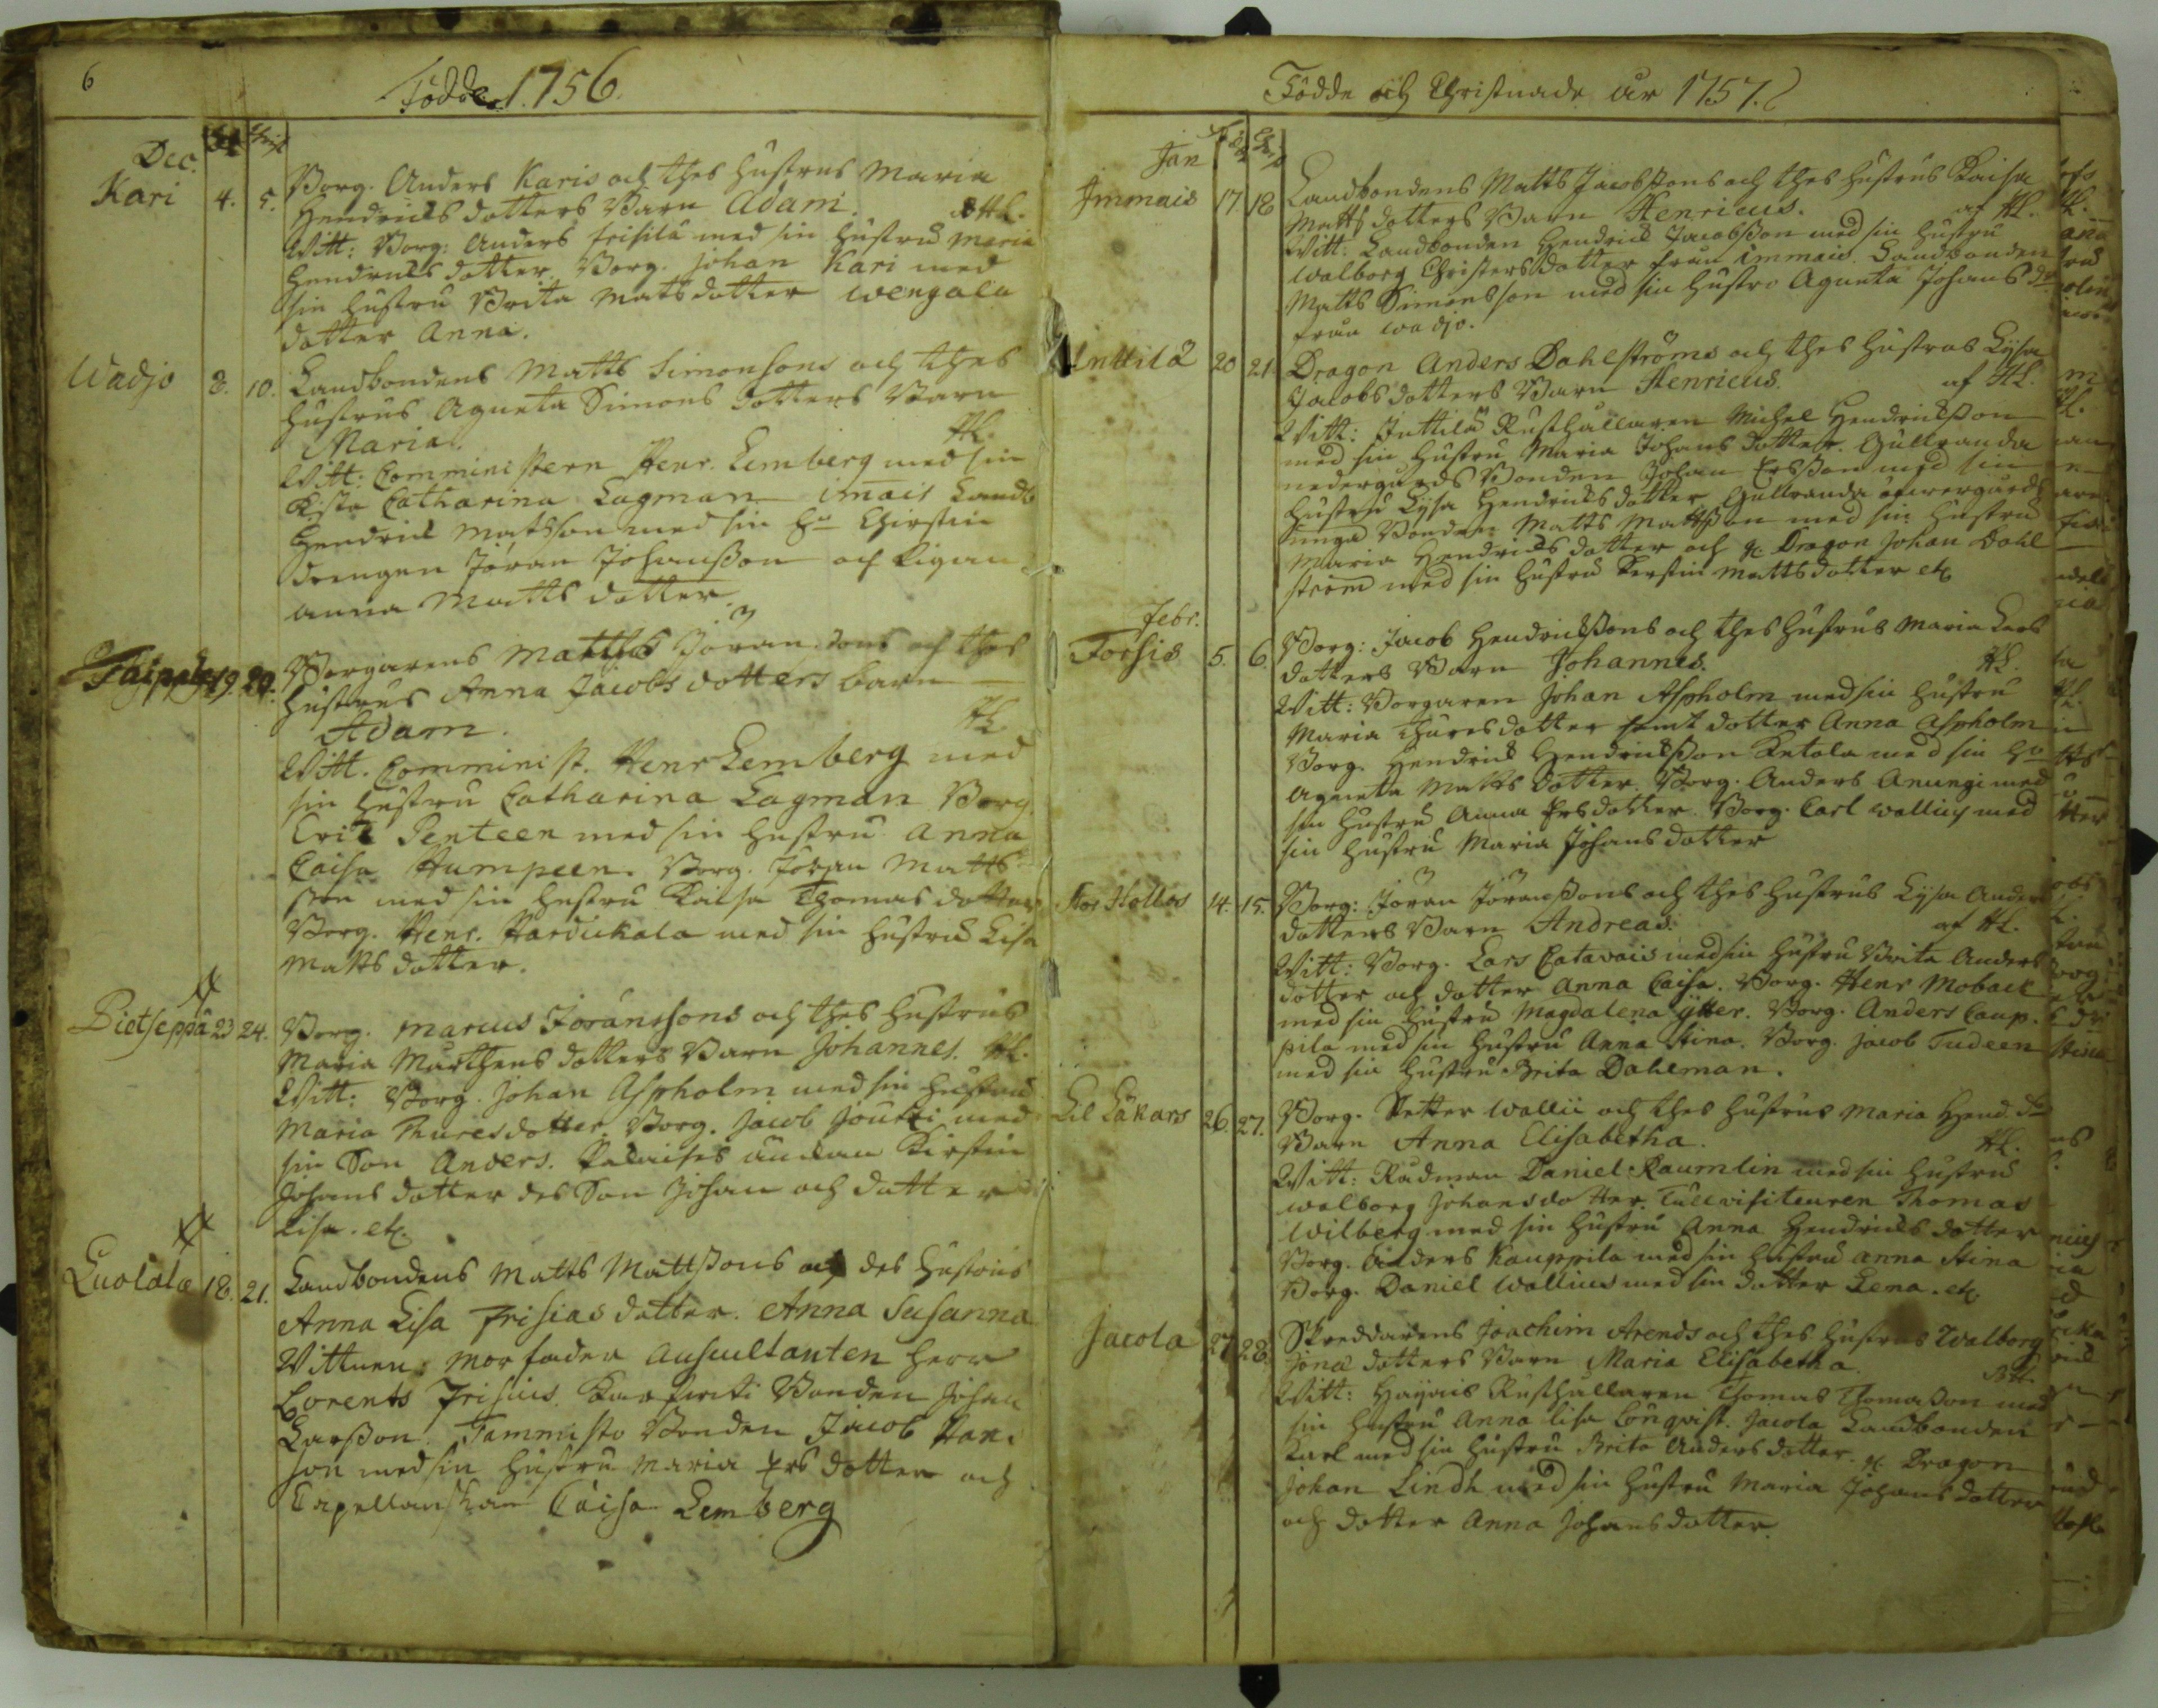 6
Födde 1756.
Dec.
Kari 4. 5. Borg. Anders Karis och thes hustrus Maria
Hendrichs dotters Barn Adam. HL.
Witt: Borg: Anders Frisilä med sin hustru Maria
Hendrichs dotter. Borg. Johan Kari med
sin hustru Brita Mats dotter Wengala
dotter Anna.
Wadjo 8. 10. Landbondens Matts Simonsons och thes
hustrus Agneta Simons dotters Barn
Maria. HL.
Witt: Comministern Henr. Lemberg med sin
Catharina Lagman imais Landb
Hendrich Mathson med sin hu Chirstin
drengen Jöran Johansson och Pigan
Anna Matts dotter
Taipale 19. 20. Borgarens Matths Jöransons och thes
hustrus Anna Jacobs dotters barn
Adam. HL
Witt. Comminist. Henr Lemberg med
sin hustru Catharina Lagman Borg
Eric Penteen med sin hustru Anna
Caisa Humpeen. Borg. Jöran Matts
son med sin hustru Kaisa Thomas dotter
Borg. Henr. Hardickala med sin hustru Lisa
Matts dotter.
Pietseppä 23 24. Borg. Marcus Joranssons och thes hustrus
Maria Marthens dotters Barn Johannes. HL.
Witt: Borg. Johan Aspholm med sin hustru
Maria Thuresdotter. Borg. Jacob Joutzi med
sin Son Anders. änkan Kirstin
Johans dotter des Son Johan och dotter
Lisa. etc.
Luolala 18. 21. Landbondens Matts Mattssons och des hustrus
Anna Lisa Frisias dotter. Anna Susanna
Wittnen: Morfader Auscultanten Herr
Lorents Frisius. Bonden Johan
Larsson. Tammisto Bonden Jacob
son med sin hustru Maria Ers dotter och
Capellanskan Caisa Lemberg
Födde och Christnade år 1757.
Jan
Immais 17. 18 Landbondens Matts Jacobssons och thes hustrus Kaisa
Matts dotters Barn Henricus. af HL.
Witt: Landbonden Hendrich Jacobsson med sin hustru
Walborg Christers dotter från immais. Landbonden
Matts Simonsson med sin hustro Agneta Johans dr
från Wadjo.
Inttilä 20 21. Dragon Anders Dahlströms och thes hustrus Lysa
Jacobs dotters Barn Henricus. af HL.
Witt: Inttilä Rusthållaren Michel Hendrichsson
med sin hustru Maria Johans dotter. Gullranda
nedergårds Bonden Johan Ersson med sin
hustru Lysa Hendrichs dotter Gullranda öfvergårds
unga Bonden Matts Mattsson med sin hustru
Maria Hendrichs dotter och Dragon Johan Dahl
ström med sin hustru Kerstin Mattsdotter etc
Febr.
Forsis 5. 6. Borg: Jacob Hendrichssons och thes hustrus Maria Lars
dotters Barn Johannes. HL.
Witt: Borgaren Johan Aspholm med sin hustru
Maria Thuresdotter samt dotter Anna Aspholm
Borg. Hendrich Hendrichsson Ketola med sin hu
Agneta Matts dotter. Borg. Anders Anungi med
sin hustru Anna Ersdotter. Borg. Carl Wallius med
sin hustru Maria Johans dotter
Stor Hollos 14. 15. Borg: Jöran Jöranssons och thes hustrus Lysa Anders
dotters Barn Andreas. af HL.
Witt: Borg. Lars Catavais med sin hustru Brita Anders
dotter och dotter Anna Caisa. Borg. Henr Moback
med sin hustru Magdalena Ytter. Borg. Anders Caup-
pila med sin hustru Anna Stina. Borg. Jacob Tudeen
med sin hustru Brita Dahlman.
Lil Låkars 26. 27. Borg. Petter Wallii och thes hustrus Maria Hend. dr
Barn Anna Elisabetha. HL.
Witt: Rådman Daniel Raumlin med sin hustru
Walborg Johansdotter. Tullvisiteuren Thomas
Wilberg med sin hustru Anna Hendrichs dotter
Borg. Anders Kauppila med sin hustru Anna Stina
Borg. Daniel Wallius med sin dotter Lena. etc.
Jacola 27. 28. Skreddarens Joachim Arends och thes hustrus Walborg
Jona dotters Barn Maria Elisabetha. HL
Witt: Hayais Rusthållaren Thomas Thomasson med
sin hustru Anna Lisa Lönqvist. Jacola Landbonden
Karl med sin hustru Brita Anders dotter. Dragon
Johan Lindh med sin hustru Maria Johans dotter
och dotter Anna Johans dotter.